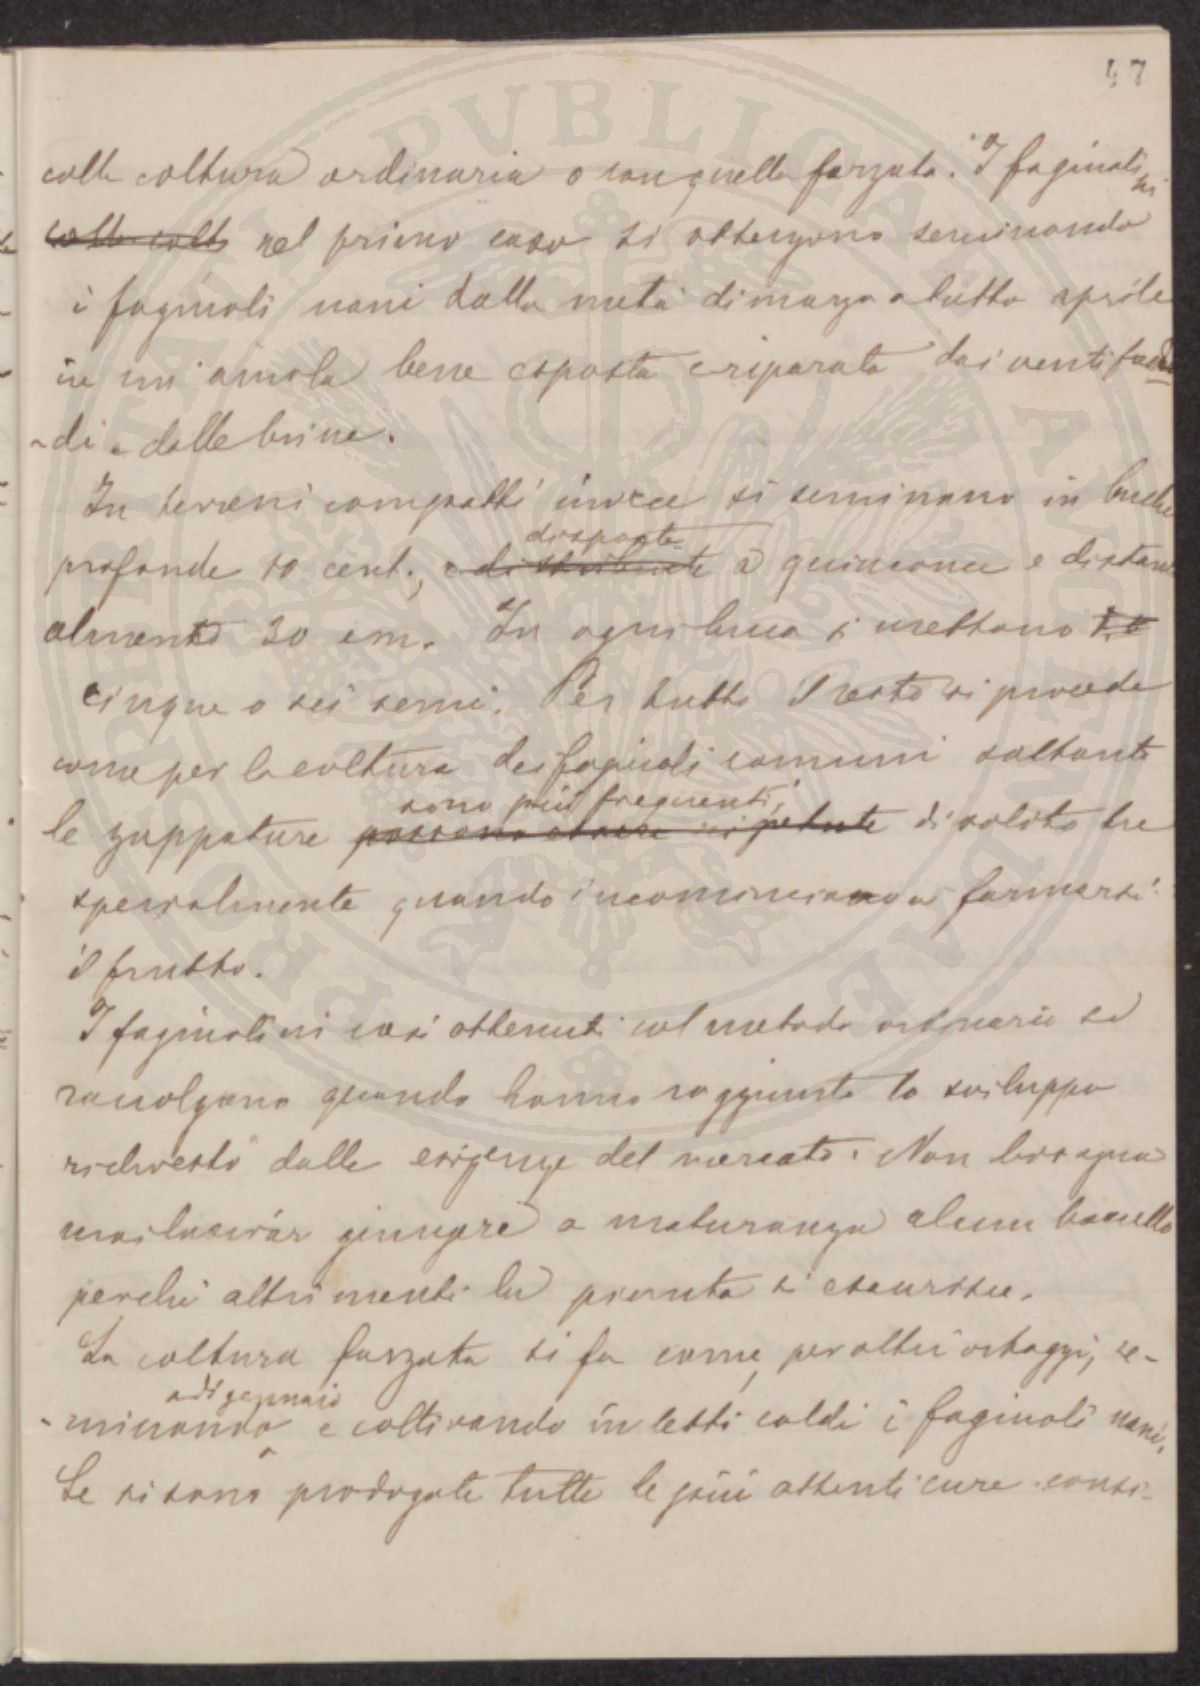 47
colla coltura ordinaria o con quella forzata. I faginoli
ni
colla colt nel primo caso si ottengono seminando
i faginoli nani dalla metà di marzo a tutto aprile
in un' ainola bene esposta e riparata dai venti fred
-di e dalle brine.
In terreni compatti invece si seminano in buche
disposte
profonde 10 cent., e distribuite a quinconce e distanti
almento 30 cm. In ogni buca si mettono
cinque o sei semi. Per tutto il resto si procede
come per la coltura dei faginoli comuni soltanto
sono più frequenti,
le zappature possono essere ripetute di solito tre
specialmente quando incominciano a formarsi
il frutto.
I faginolini così ottenuti col metodo ordinario si
raccolgono quando hanno raggiunto lo sviluppo
richiesto dalle esigenze del mercato. Non bisogna
mai lasciar giungere a maturanza alcun baccello
perchè altrimenti la pianta si esaurisce.
La coltura forzata si fa come, per altri ortaggi, se-
a di gennaio
-minando e coltivando in letti caldi i faginoli nani.
Se si sono prodogate tutte le più attenti cure consi-
PROPRIETAT PVBLICAE AMOENVM DAE